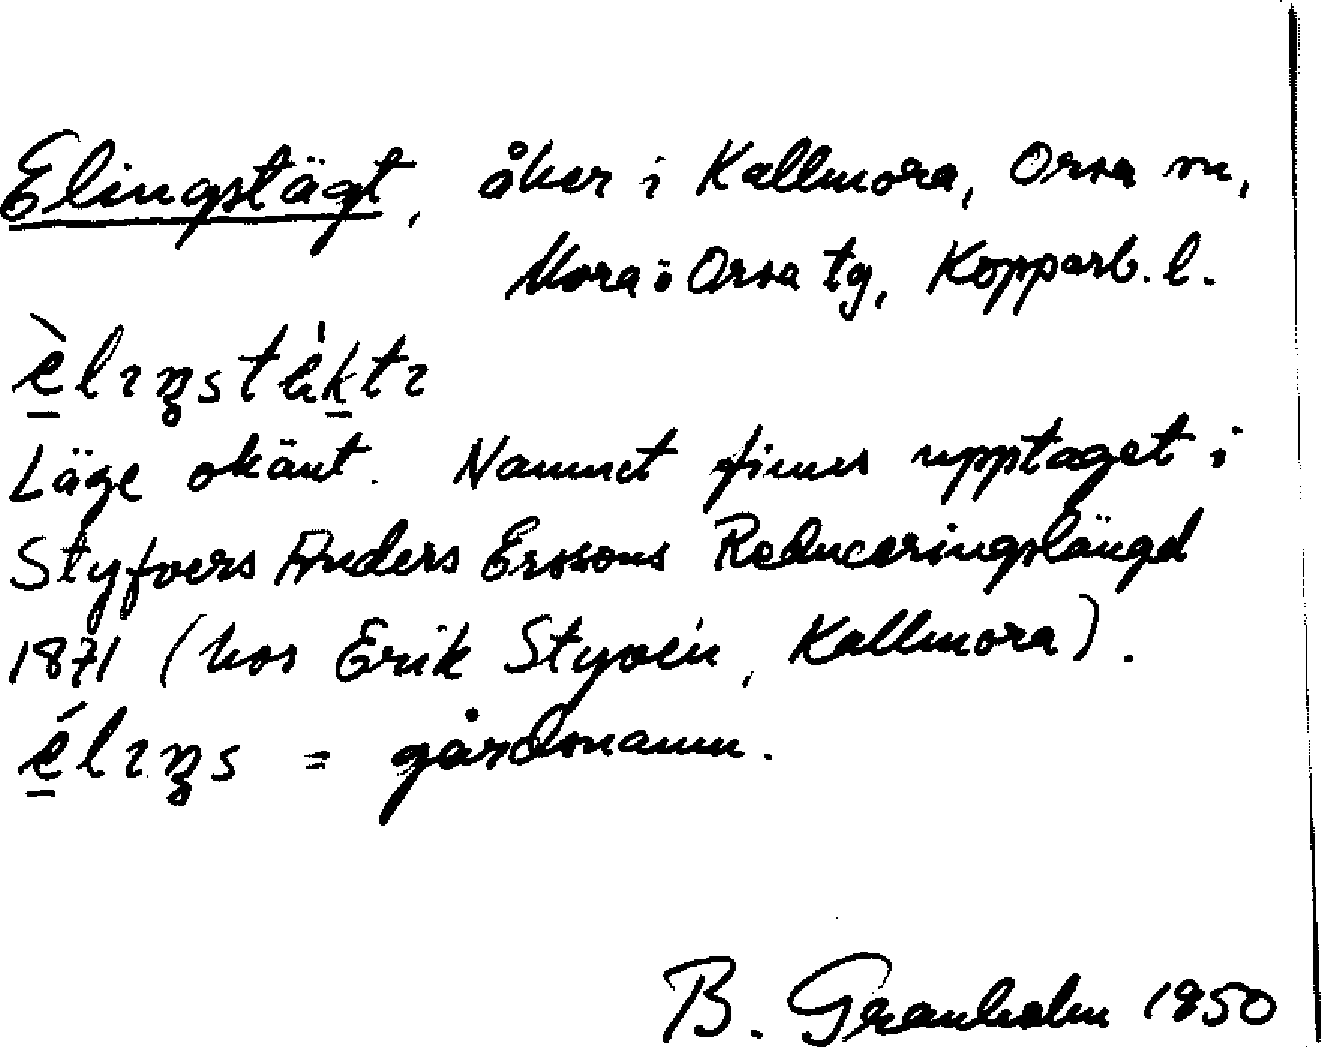 Elingstägt, åker i Kallmora, Orsa sn,
Mora o Orsa tg, Kopparb. l.
èlıŋstèktı
Läge okänt. Namnet finns upptaget i
Styfvers Anders Erssons Reduceringslängd
1871 (hos Erik Styvén, Kallmora).
élıŋs = gårdsnamn.
B. Granholm 1950